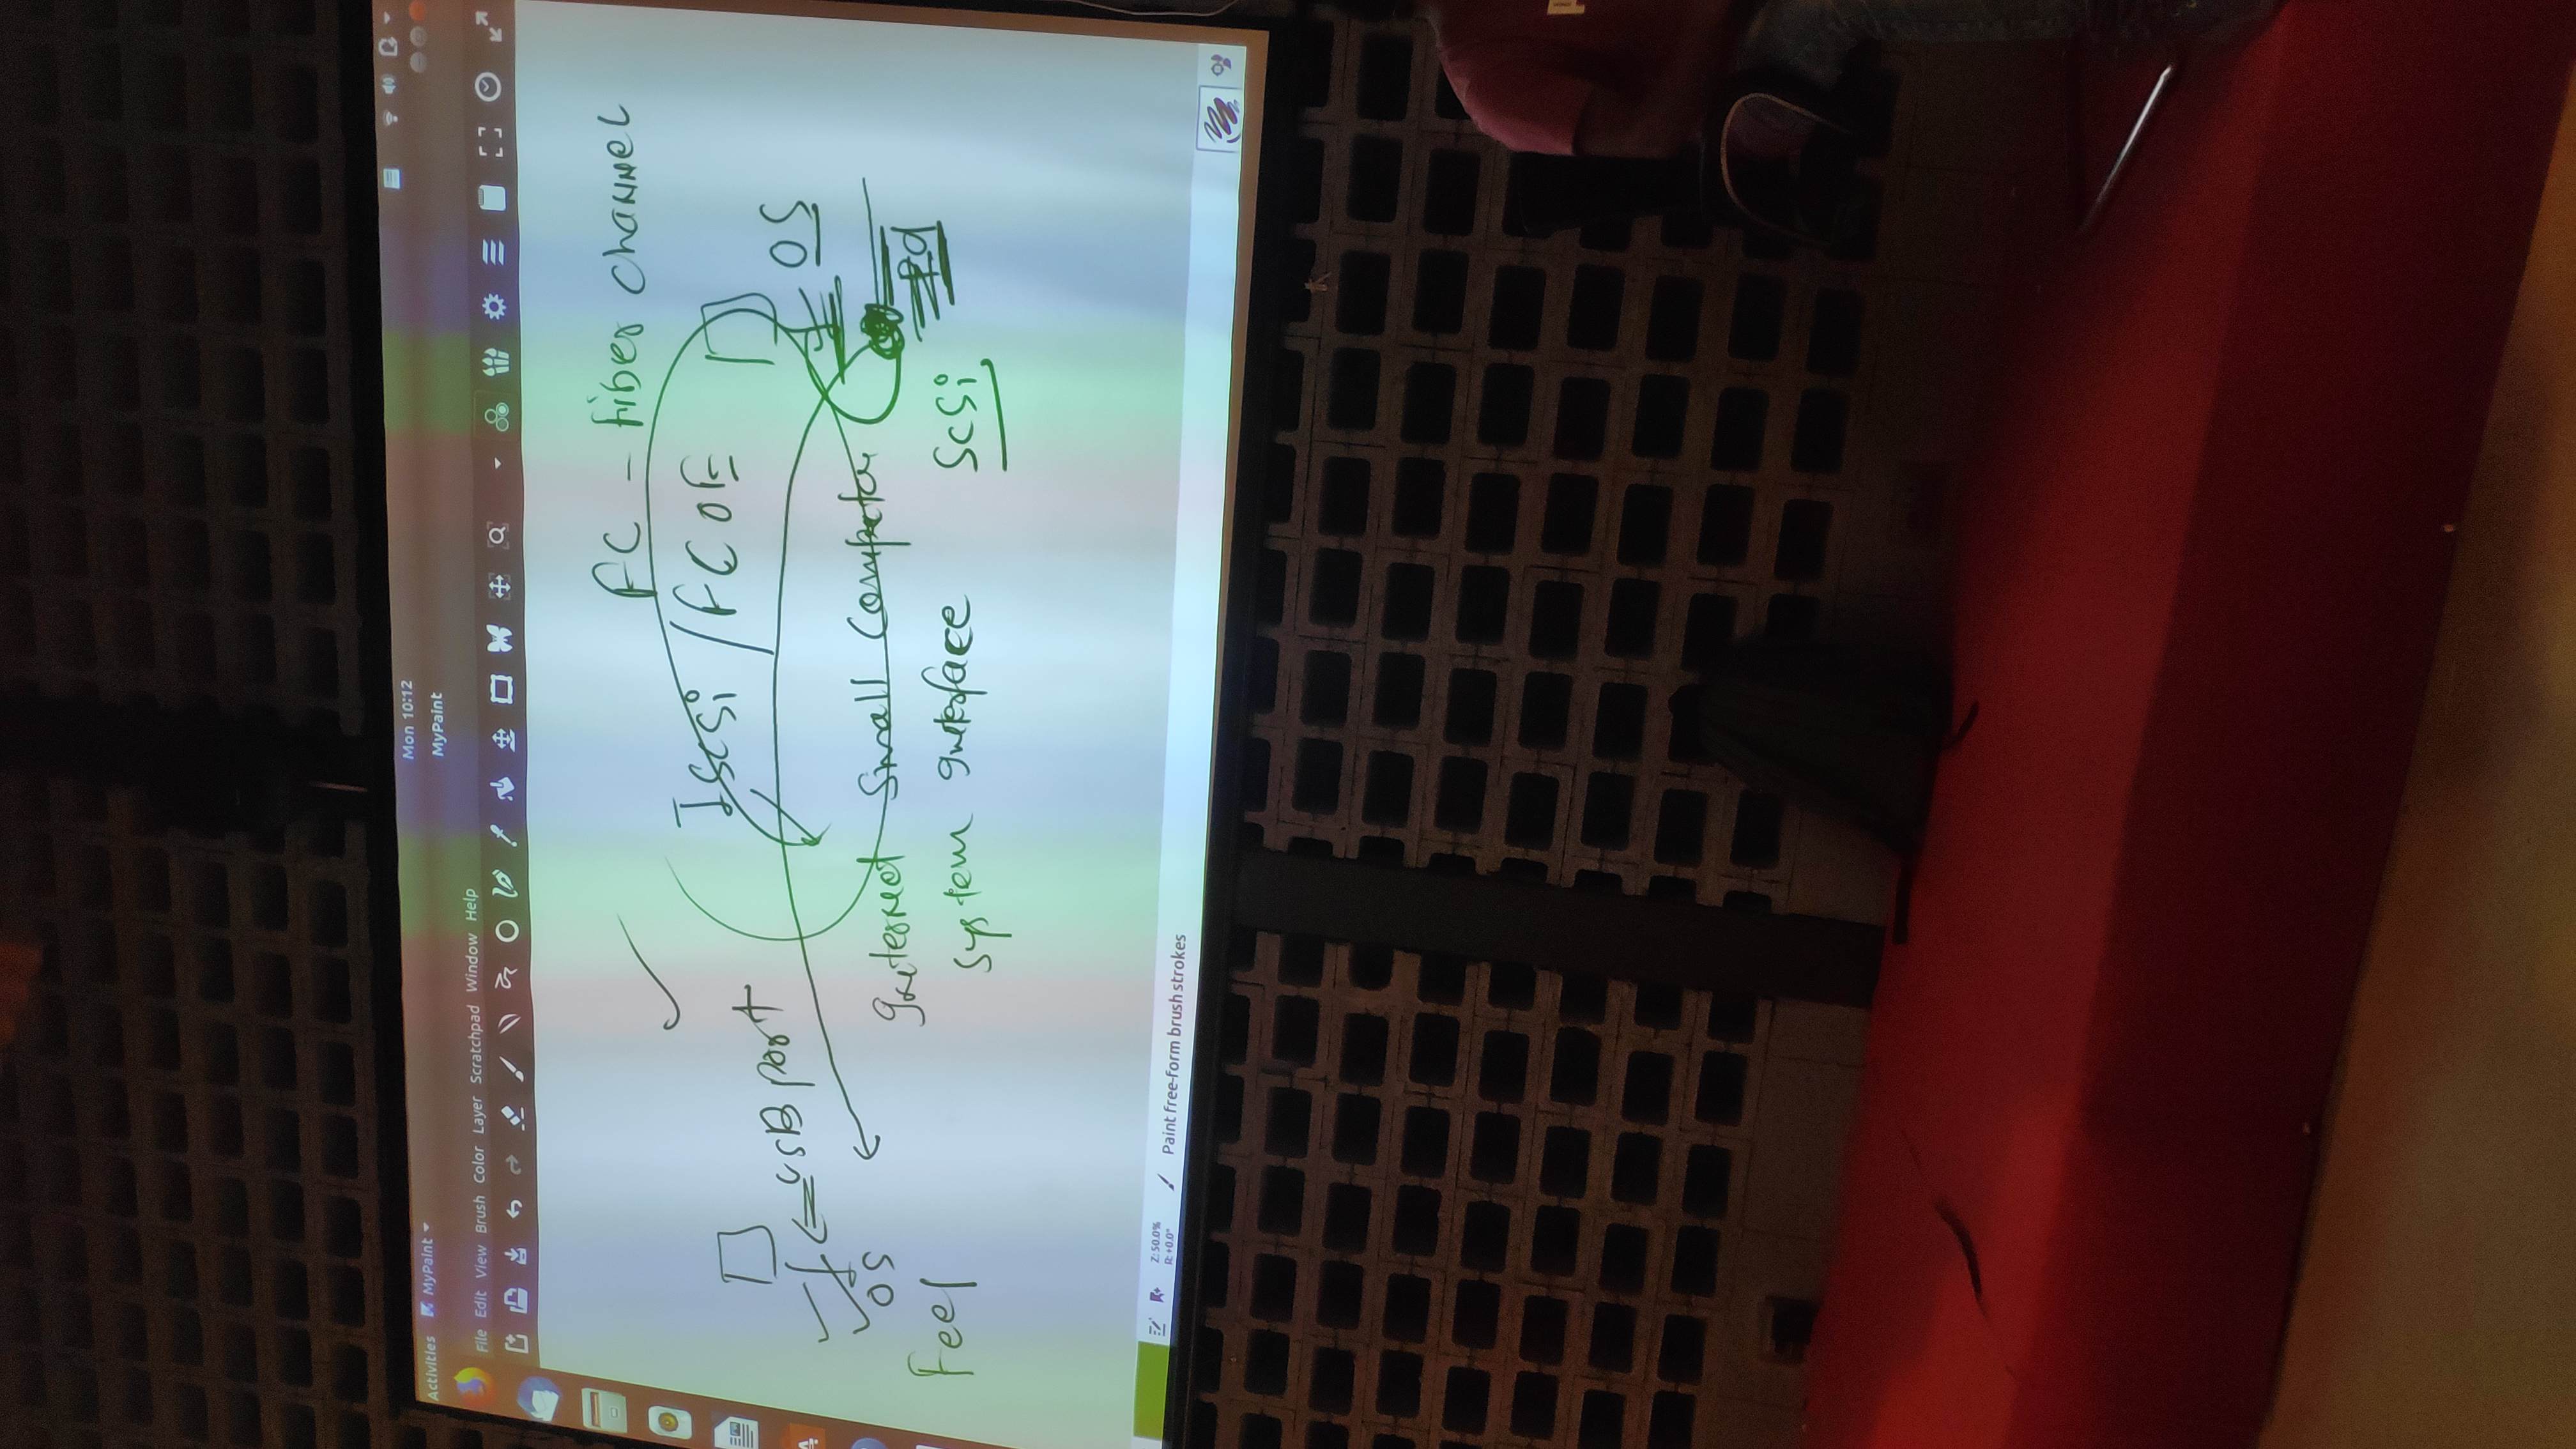 Mon 10:12
Activities MyPaint
MyPaint
File Edit View Brush Color Layer Scratchpad Window Help
FC - fiber channel
Iscsi / FCOE
USB port
OS
OS
Internet Small Computer
System Interface
Feel
SCSi
Z: 50.0%
R: +0.0°
Paint free-form brush strokes